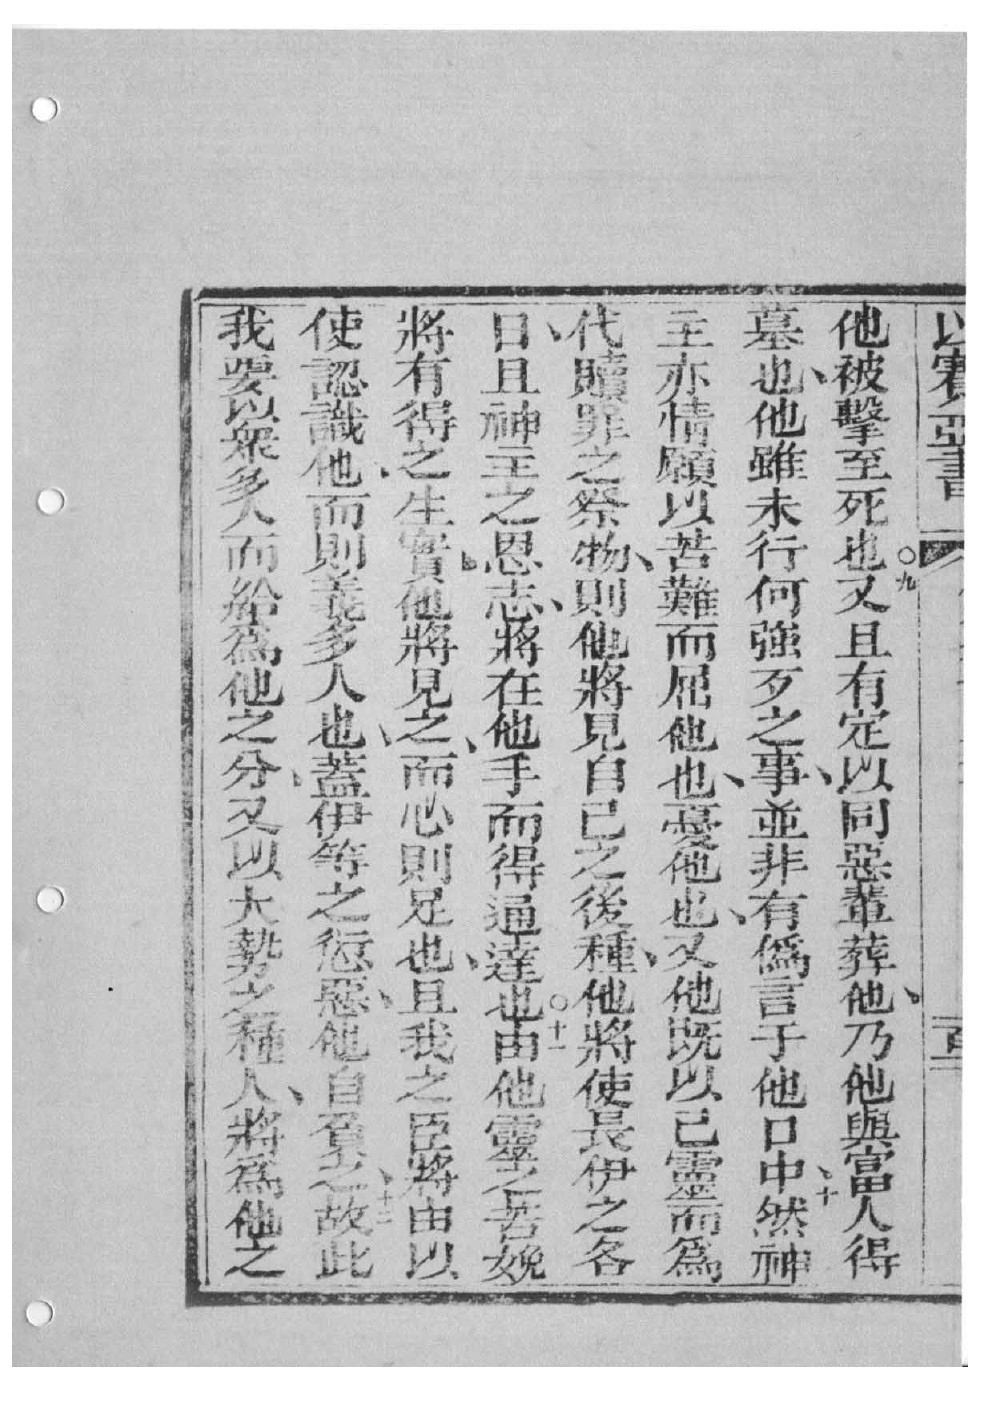 以賽亞書
他被擊至死也○九又且有定以同惡輩葬他、乃他與富人得
墓也、他雖未行何強歹之事、並非有僞言于他口中、十然神
主亦情願以苦難而屈他也、憂他也、又他既以己靈而爲
代贖罪之祭物、則他將見自己之後種、他將使長伊之各
日、且神主之恩志、將在他手而得通達也○十一由他靈之苦娩
將有得之生實、他將見之、而心則足也、且我之臣將由以
使認識他、而則義多人也、蓋伊等之愆惡、他自負之、十二故此
我要以衆多人而給爲他之分、又以大勢之種人、將爲他之